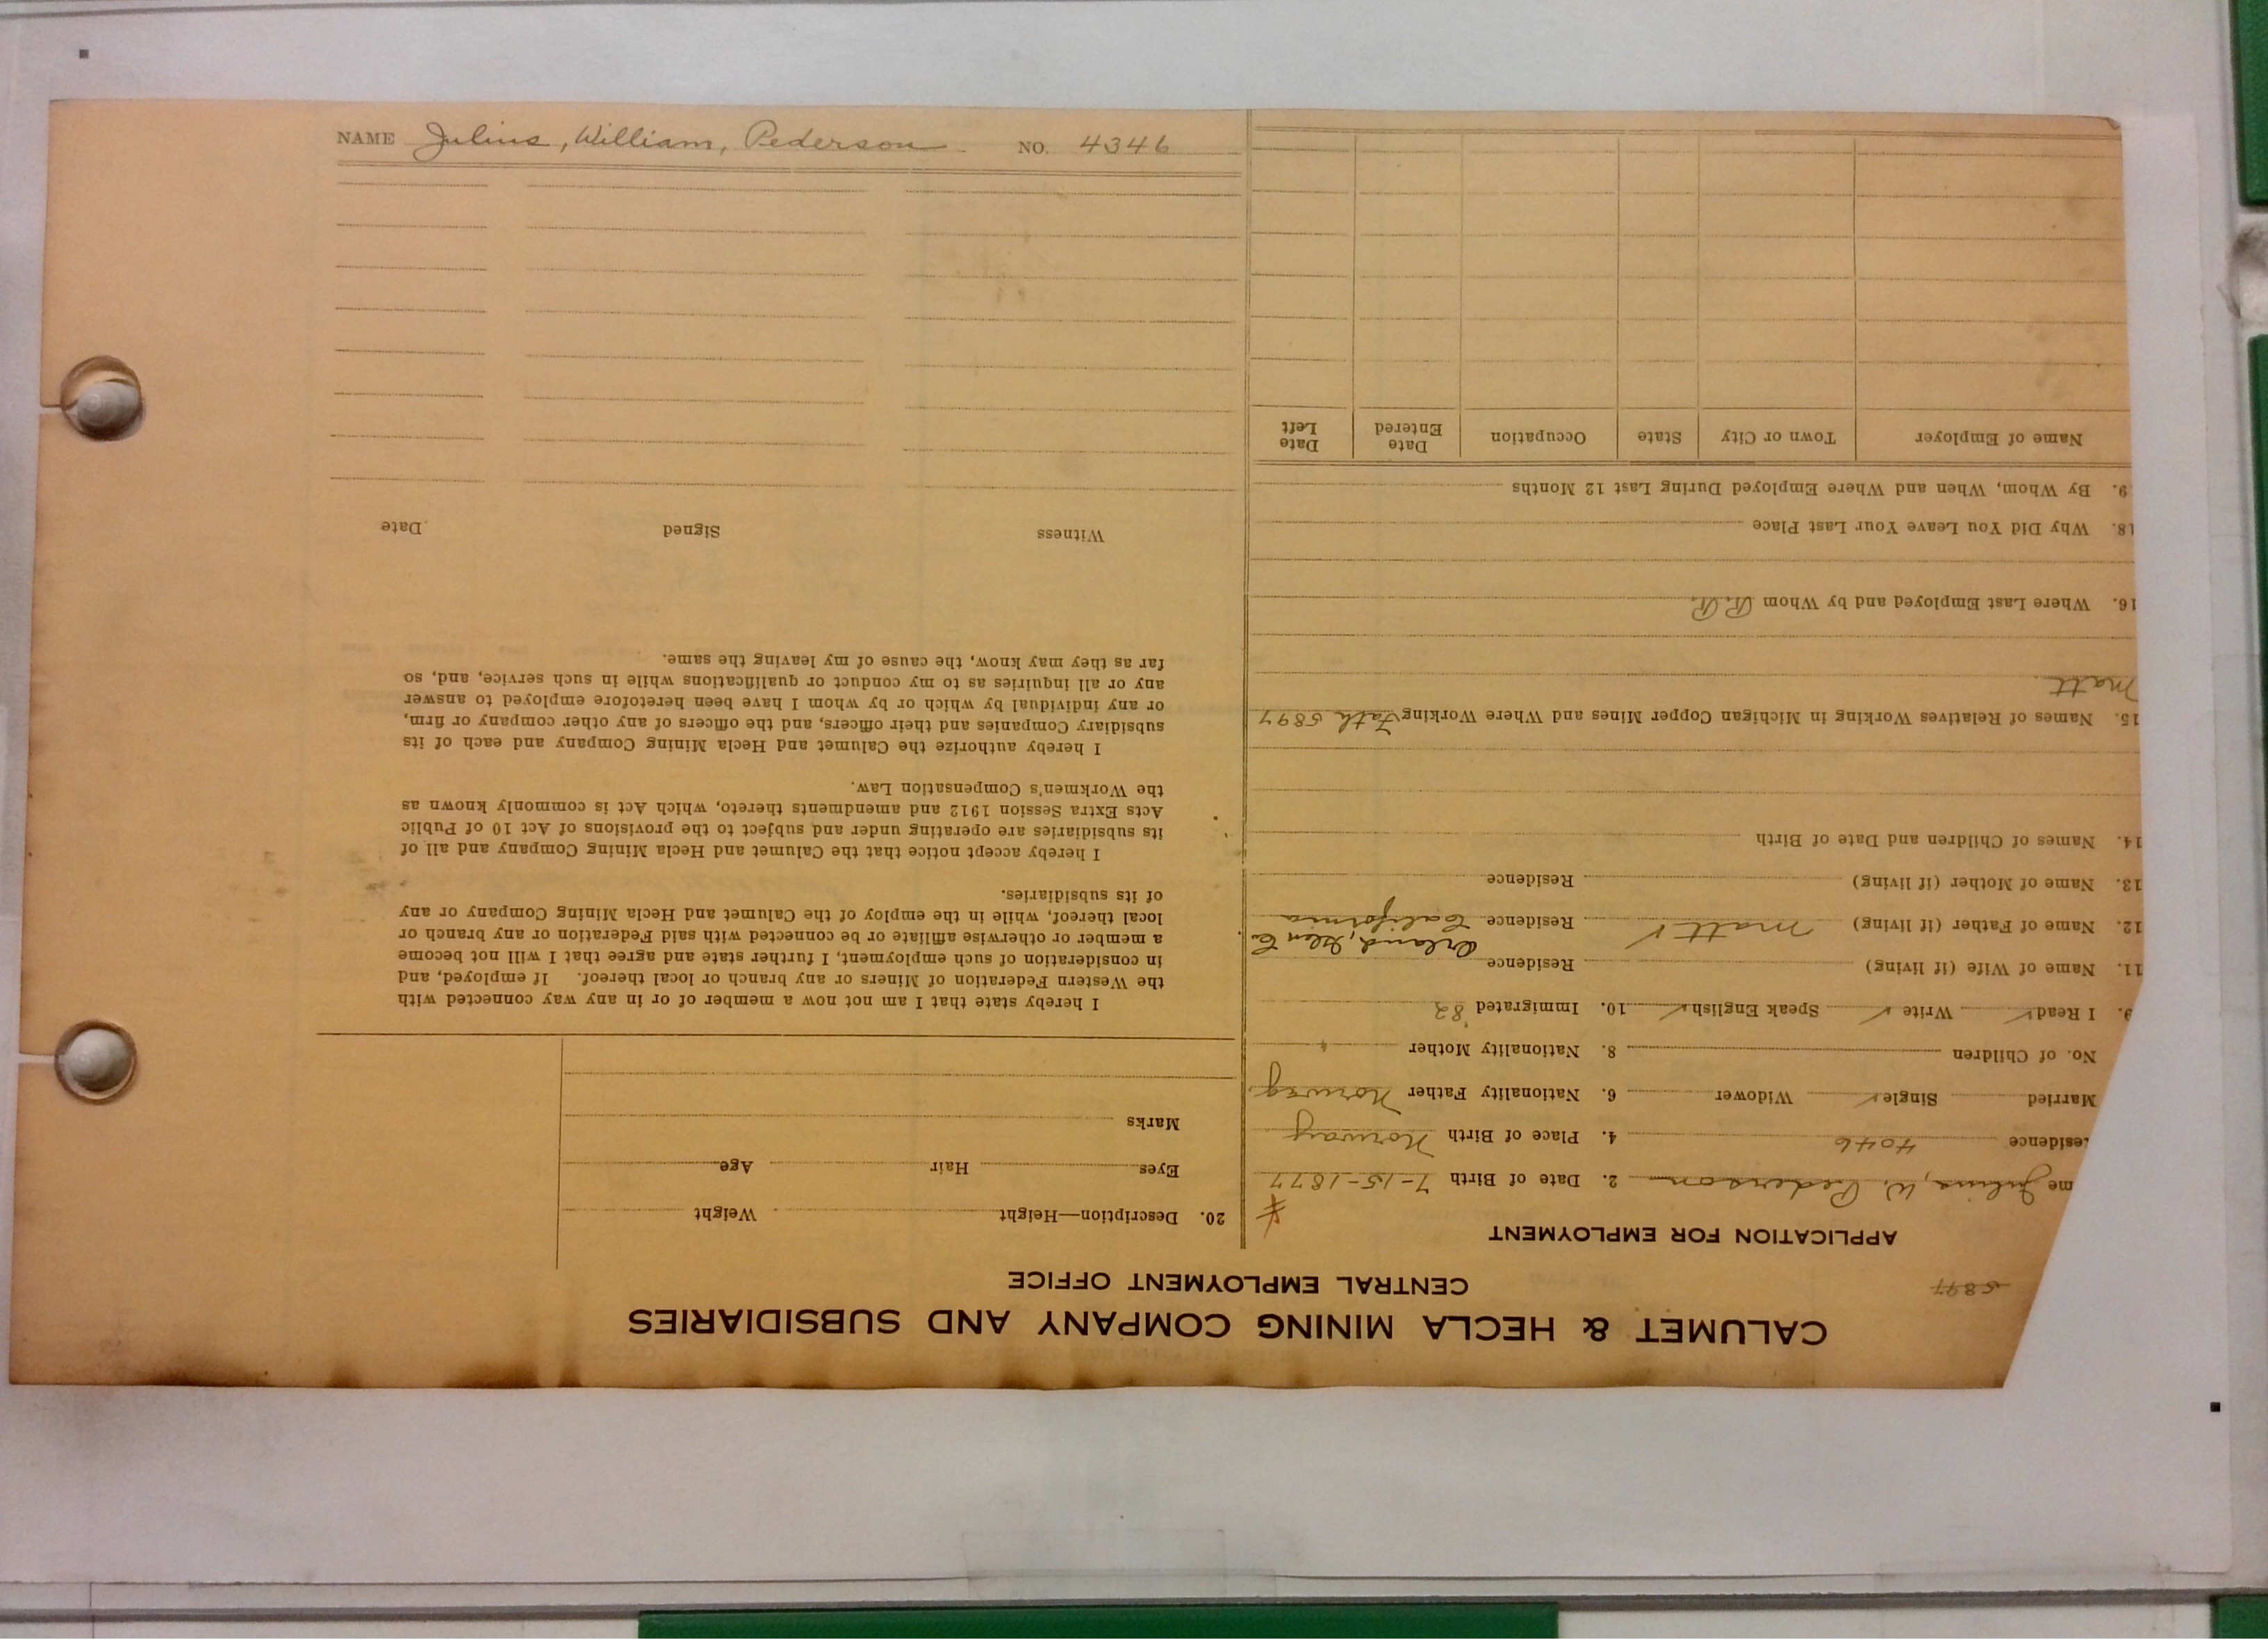 NAME Julius, William, Pederson NO. 4346
CALUMET & HECLA MINING COMPANY AND SUBSIDIARIES
CENTRAL EMPLOYMENT OFFICE
5897
APPLICATION FOR EMPLOYMENT
me Julius, W. Pederson 2. Date of Birth 7-15-1877
esidence 4046 4. Place of Birth Norway
Married Single ✓ Widower 6. Nationality Father Norweg.
No. of Children 8. Nationality Mother "
9. I Read ✓ Write ✓ Speak English ✓ 10. Immigrated '82
11. Name of Wife (if living) Residence
Orland, Glen Co
12. Name of Father (if living) Matt ✓ Residence California
13. Name of Mother (if living) Residence
14. Names of Children and Date of Birth
15. Names of Relatives Working in Michigan Copper Mines and Where Working Fath 5897
Matt
16. Where Last Employed and by Whom R.R.
18. Why Did You Leave Your Last Place
9. By Whom, When and Where Employed During Last 12 Months
Name of Employer Town or City State Occupation Date Entered Date Left
20. Description—Height Weight
Eyes Hair Age
Marks
I hereby state that I am not now a member of or in any way connected with
the Western Federation of Miners or any branch or local thereof. If employed, and
in consideration of such employment, I further state and agree that I will not become
a member or otherwise affiliate or be connected with said Federation or any branch or
local thereof, while in the employ of the Calumet and Hecla Mining Company or any
of its subsidiaries.
I hereby accept notice that the Calumet and Hecla Mining Company and all of
its subsidiaries are operating under and subject to the provisions of Act 10 of Public
Acts Extra Session 1912 and amendments thereto, which Act is commonly known as
the Workmen's Compensation Law.
I hereby authorize the Calumet and Hecla Mining Company and each of its
subsidiary Companies and their officers, and the officers of any other company or firm,
or any individual by which or by whom I have been heretofore employed to answer
any or all inquiries as to my conduct or qualifications while in such service, and, so
far as they may know, the cause of my leaving the same.
Witness Signed Date